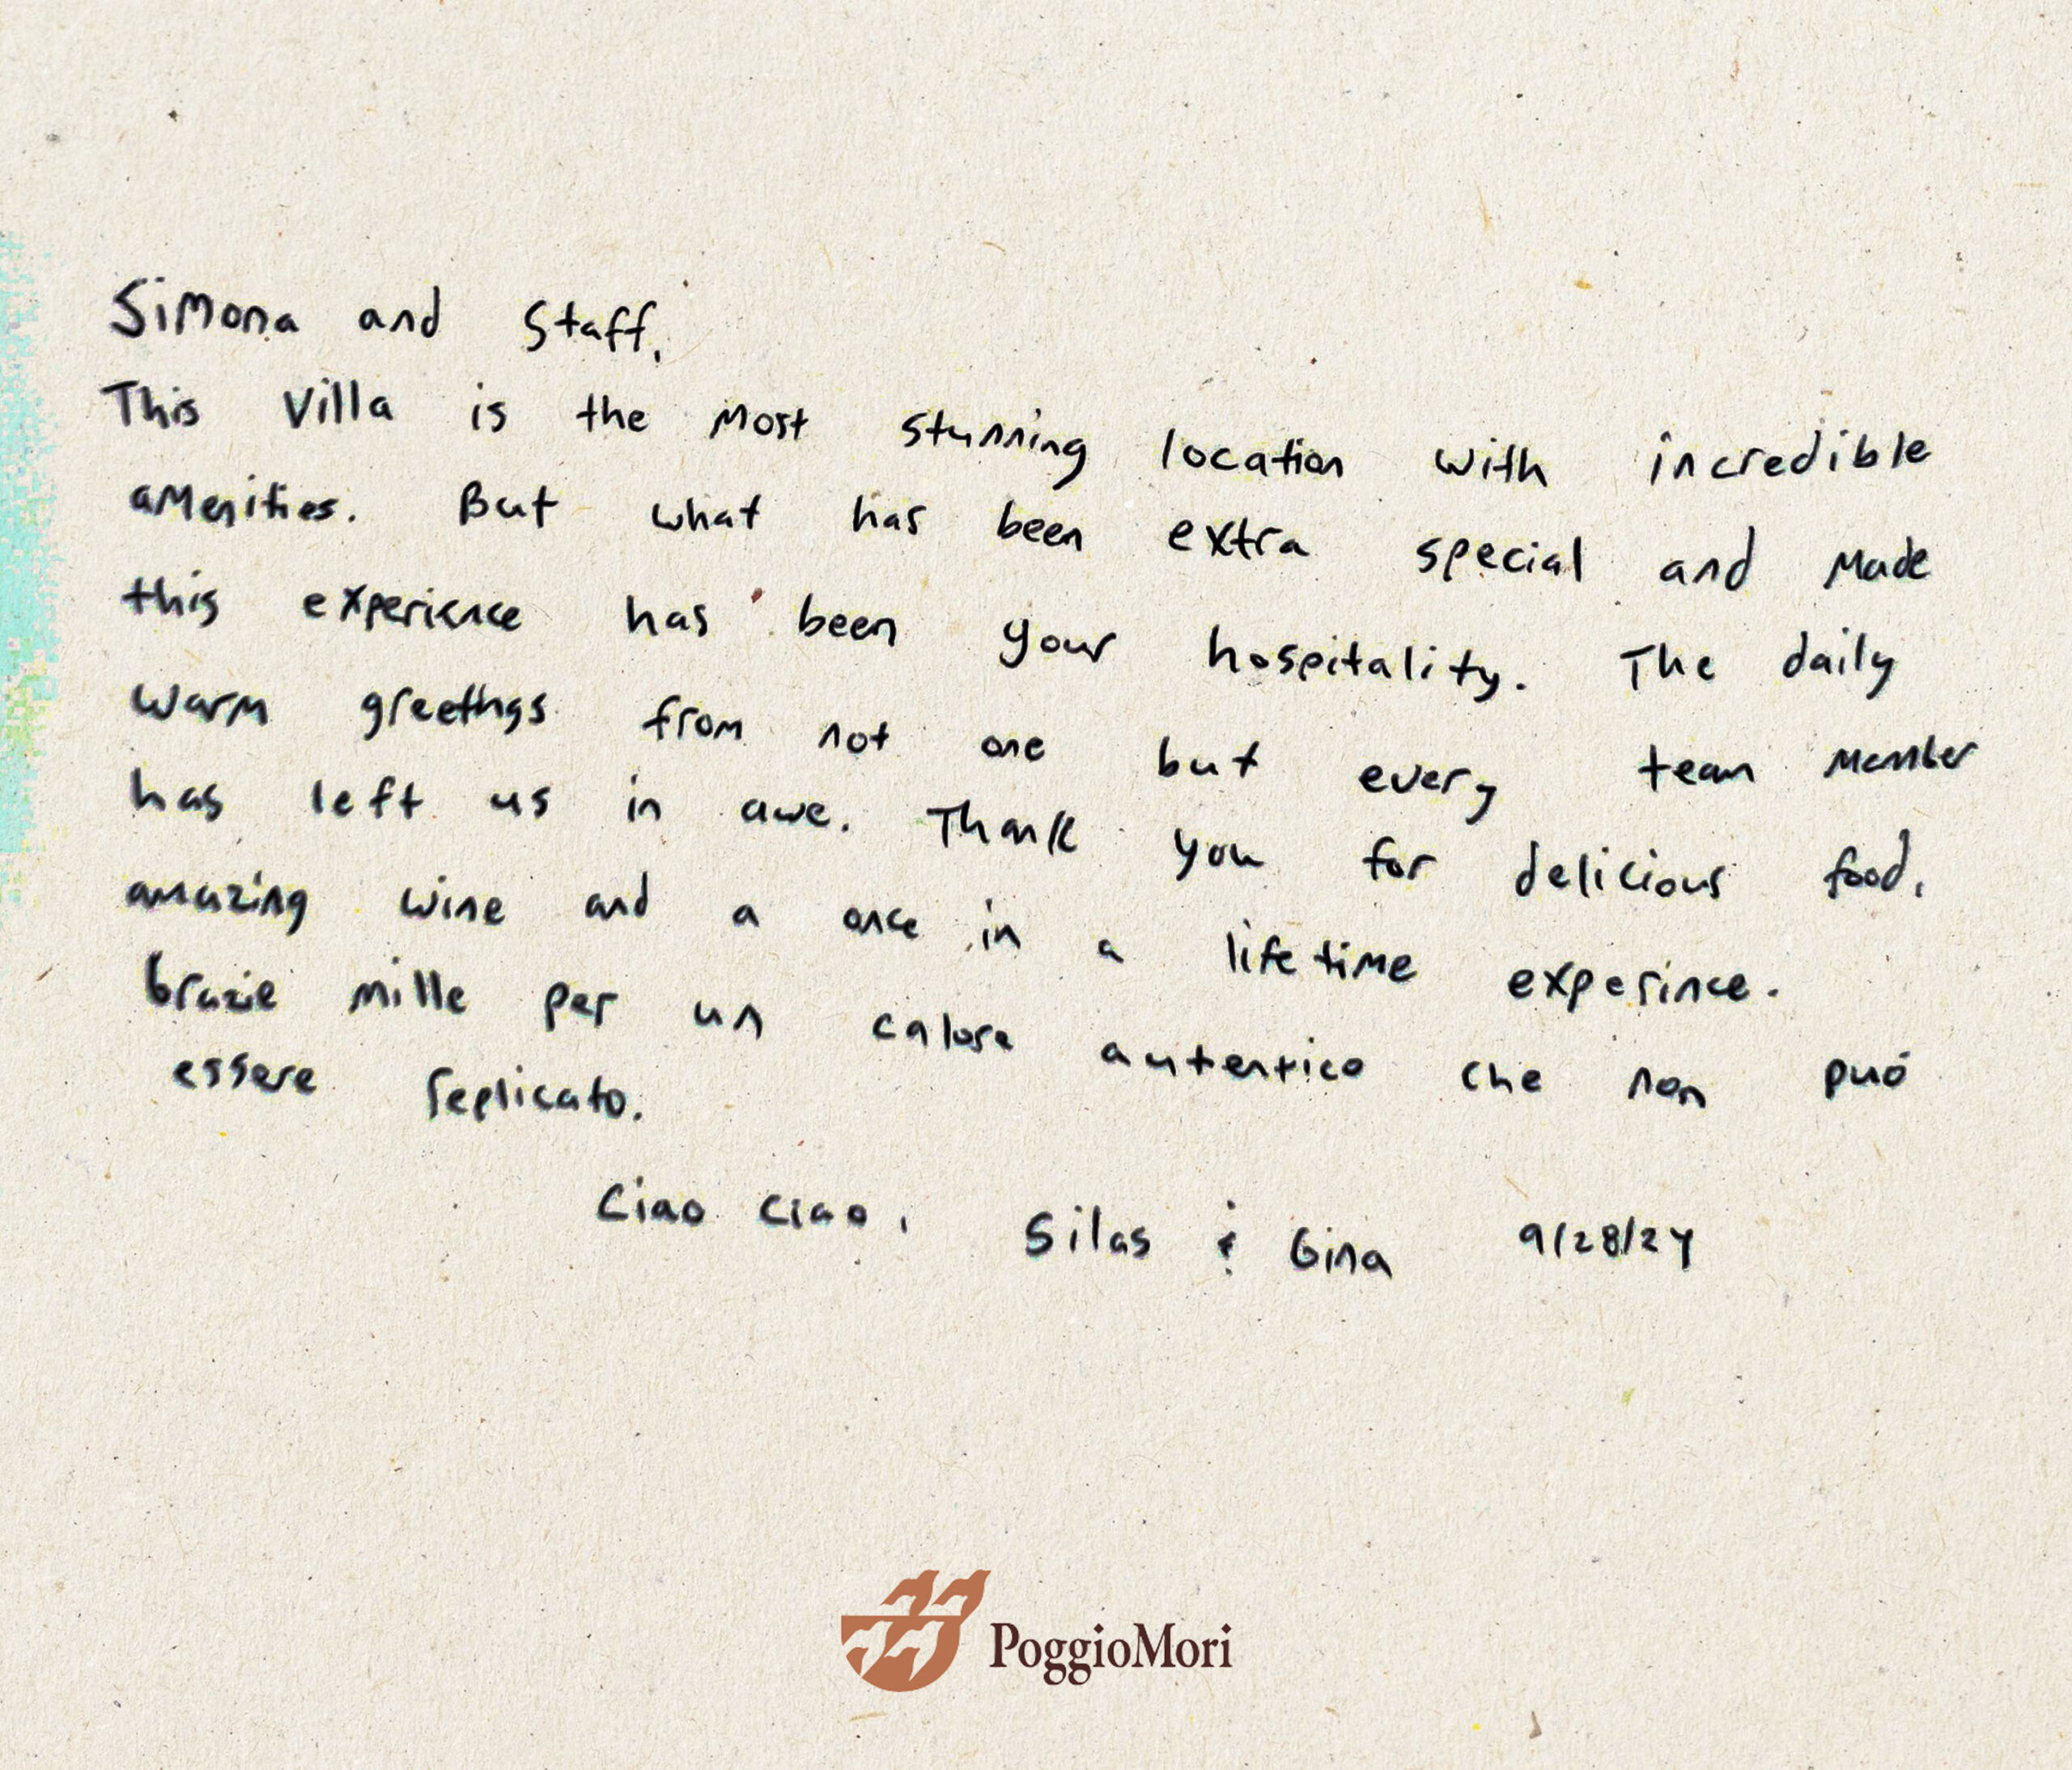 Simona and Staff,
This Villa is the most stunning location with incredible
amenities. But what has been extra special and made
this experience has been your hospitality. The daily
warm greetings from not one but every team member
has left us in awe. Thank you for delicious food,
amazing wine and a once in a lifetime experince.
Grazie mille per un calore autentico che non può
essere replicato.
Ciao Ciao, Silas & Gina 9/28/24
PoggioMori